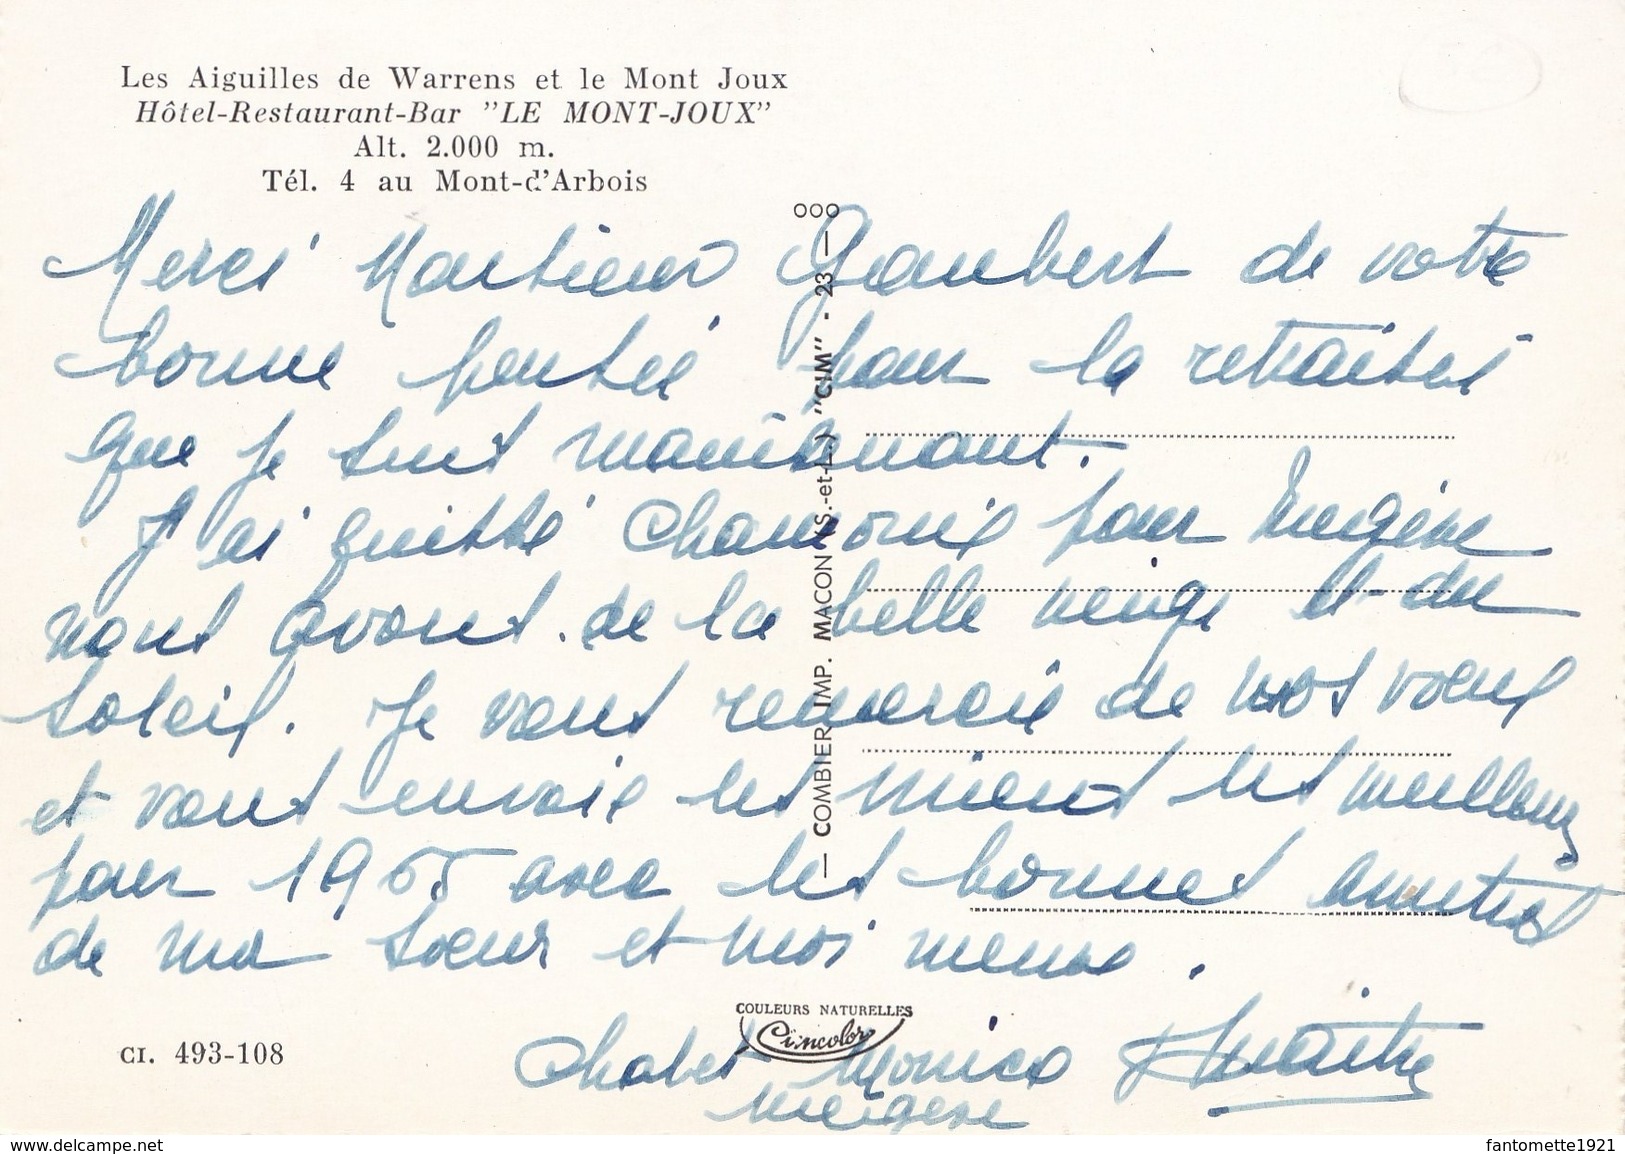 Les Aiguilles de Warrens et le Mont Joux
Hôtel-Restaurant-Bar "LE MONT-JOUX"
Alt. 2.000 m.
Tél. 4 au Mont-d'Arbois
Merci Monsieur Gaubert de votre
bonne pensée pour la retraitée
que je suis maintenant.
J'ai quitté Chamonix pour Megève
nous avons de la belle neige et du
soleil. Je vous remercie de vos vœux
et vous envoie les miens les meilleurs
pour 1965 avec les bonnes amitiés
de ma sœur et moi même.
Chalet Monica
Megève
COMBIER IMP. MACON (S.-et-L.) "CIM" - 23 - 000
COULEURS NATURELLES
Cimcolor
CI. 493-108
Les ventes sur delcampe.net
fantomette1921